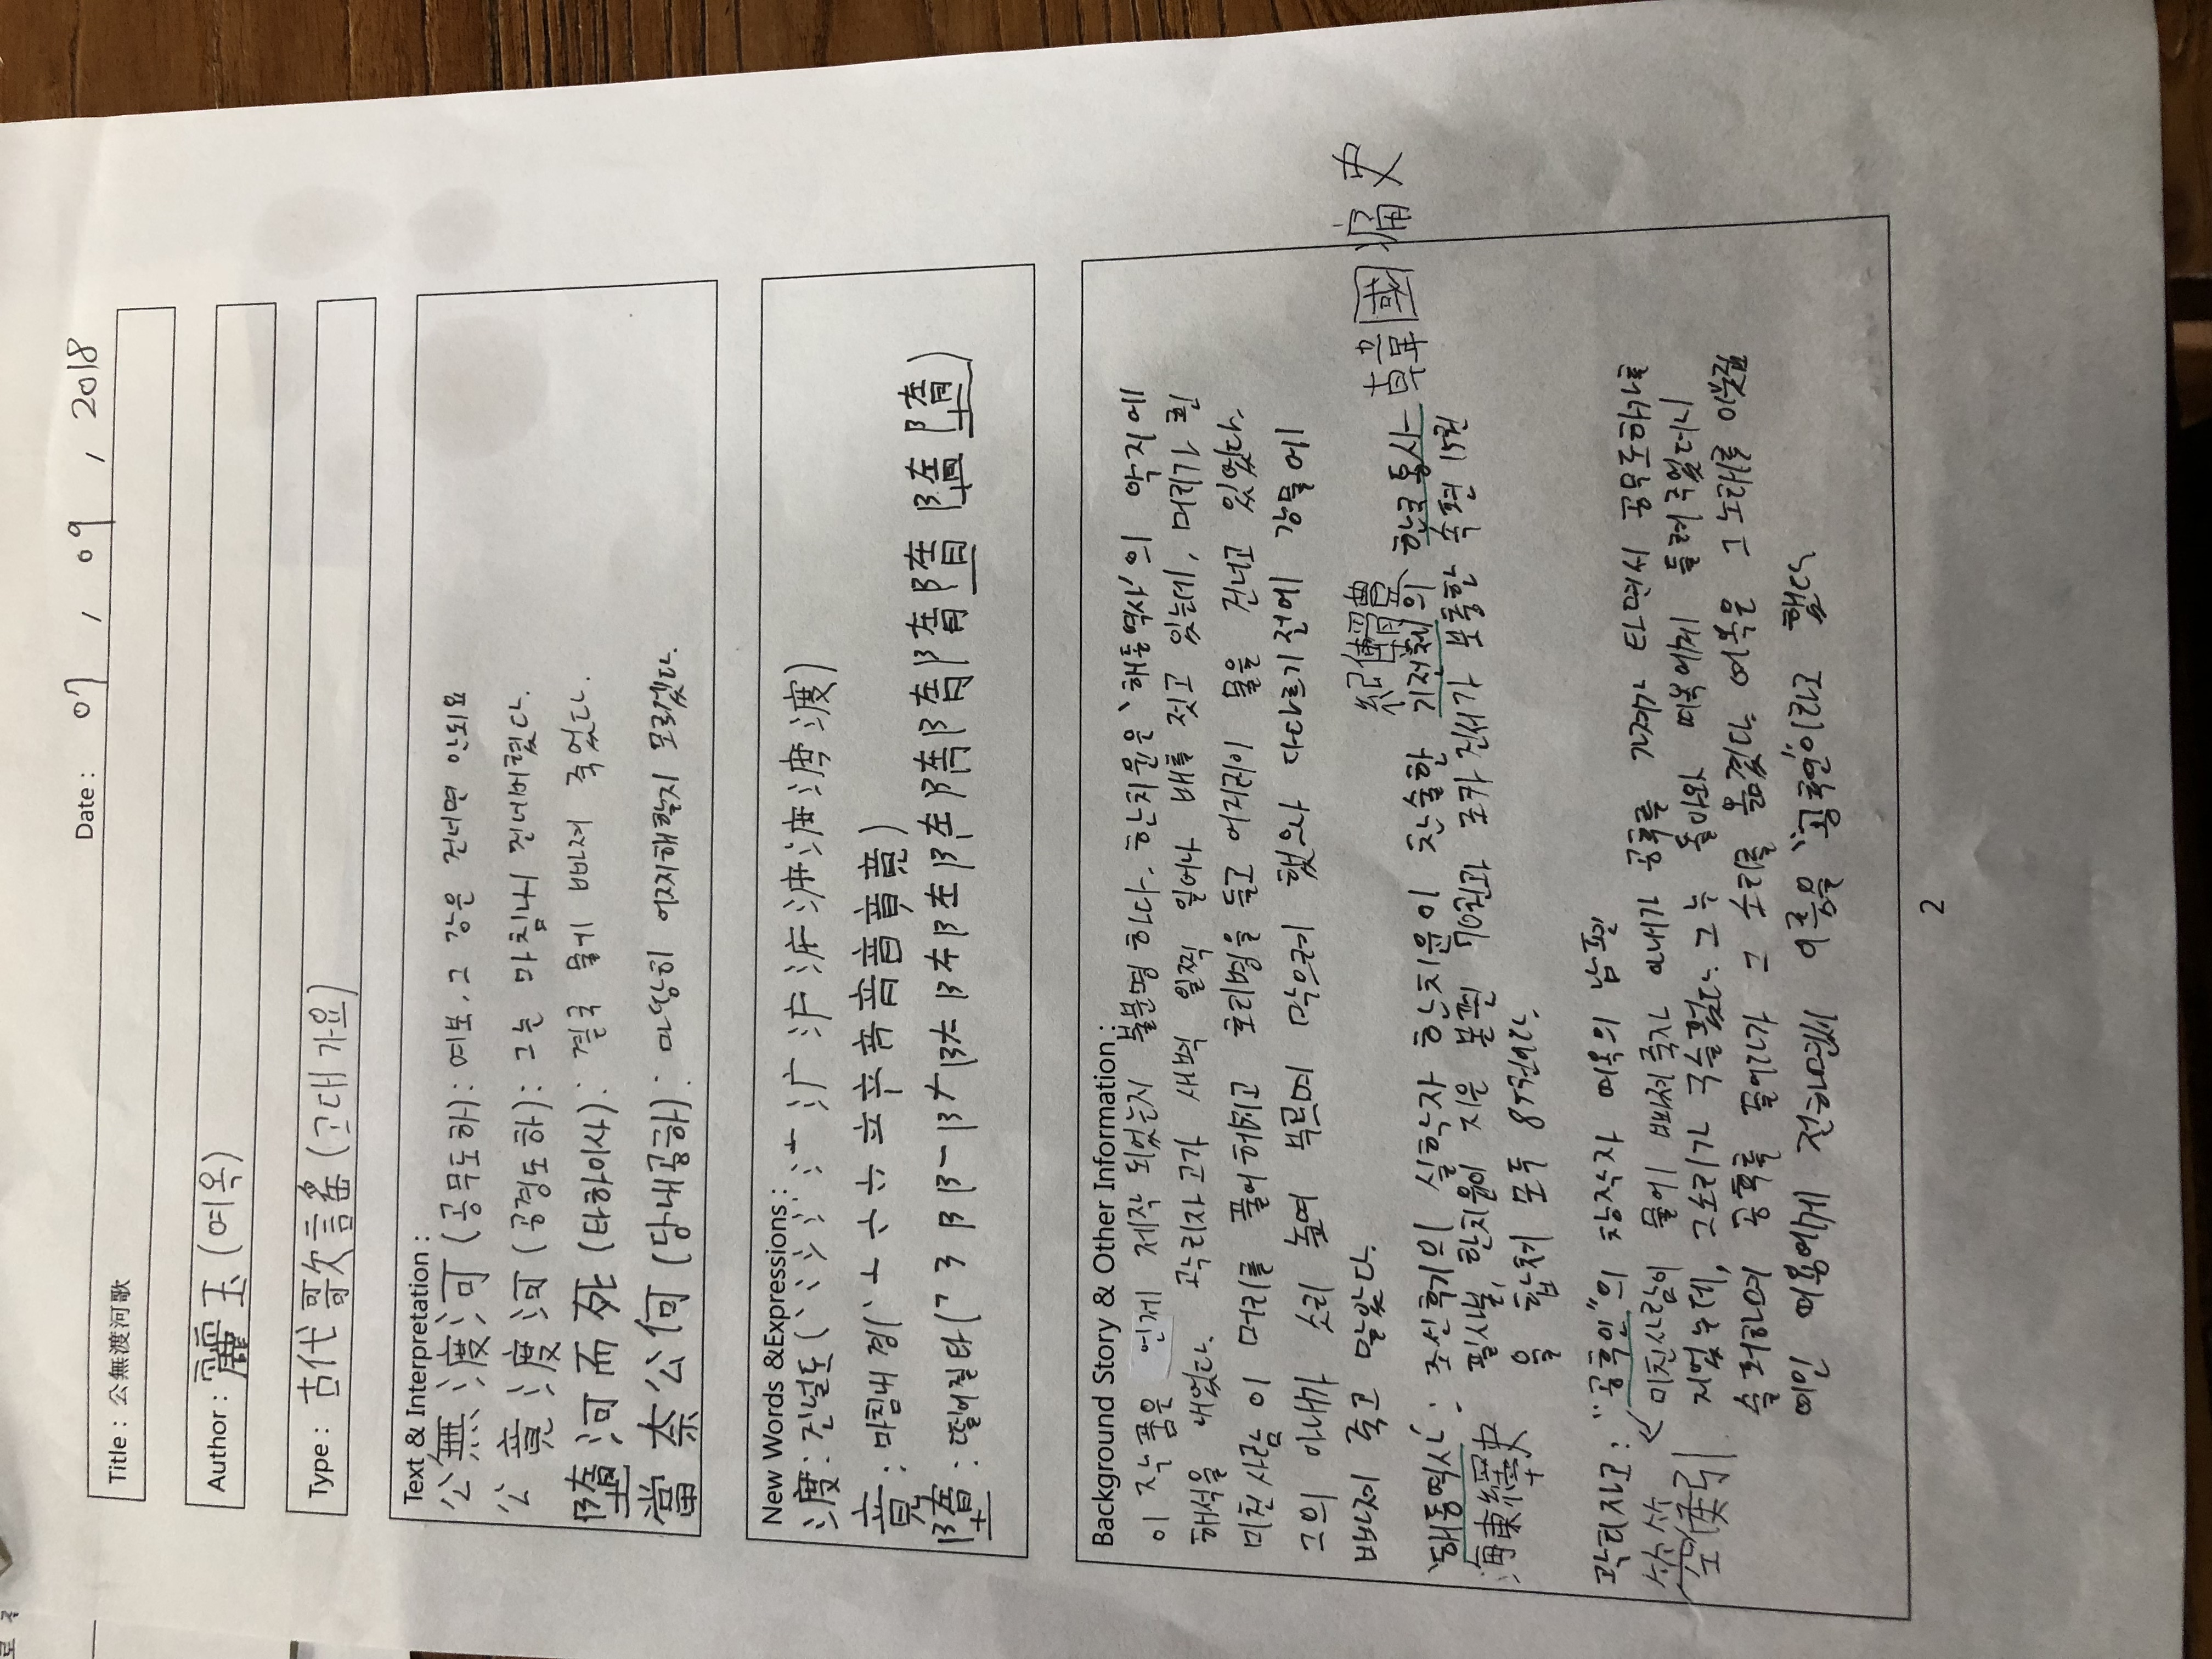 Date : 07 / 09 , 2018
Title : 公無渡河歌
Author : 麗玉 (여옥)
Type : 古代歌謠 (고대가요)
Text & Interpretation :
公無渡河 (공무도하) : 여보, 그 강은 건너면 안되요
公竟渡河 (공경도하) : 그는 마침내 건너버렸다.
墮河而死 (타하이사) : 결국 물에 빠져 죽었다.
當奈公何 (당내공하) : 마땅히 어찌해할지 모르겠다.
New Words &Expressions :
渡 : 건널도 (
竟 : 마침내 경 (
墮 : 떨어질타 (
Background Story & Other Information :
이 작품은 언제 제작 되었는지 불분명하다. 한치윤은 '해동역사'의 악지에
해석을 내었다. 곽리자고가 새벽 일찍 일어나 배를 젓고 있는데, 머리가 흰
미친사람이 머리를 풀어헤치고 호리병을 들고 어지러이 물을 건너고 있었다.
그의 아내가 소리 높여 부르며 막으려 했으나 다다르기전에 강물에
빠져 죽고 말았다.
紀傳體 韓國痛史
'해동역사' : 조선후기의 실학자 한치윤이 찬술한 기전체의 한국통사
海東繹史 필사본, 한치윤이 지은 본편 70권과 조카 진서가 보충한 속편 15권
을 합쳐 모두 85권이다.
곽리자고 : "공후인"의 창작자 여옥의 남편
箜篌引 미친사람이 물에 빠져죽자 아내가 공후를 가져가 타면서 공무도하가를
지었는데, 그소리가 구슬펐다. 그는 돌아와 여옥에게 들려주었더니
슬퍼하며 공후를 끌어다가 그 소리를 옮겼다. 여옥은 그 노래를 이웃집
여인 여용에게 전하면서 이름을 '공후인'이라고 했다.
2